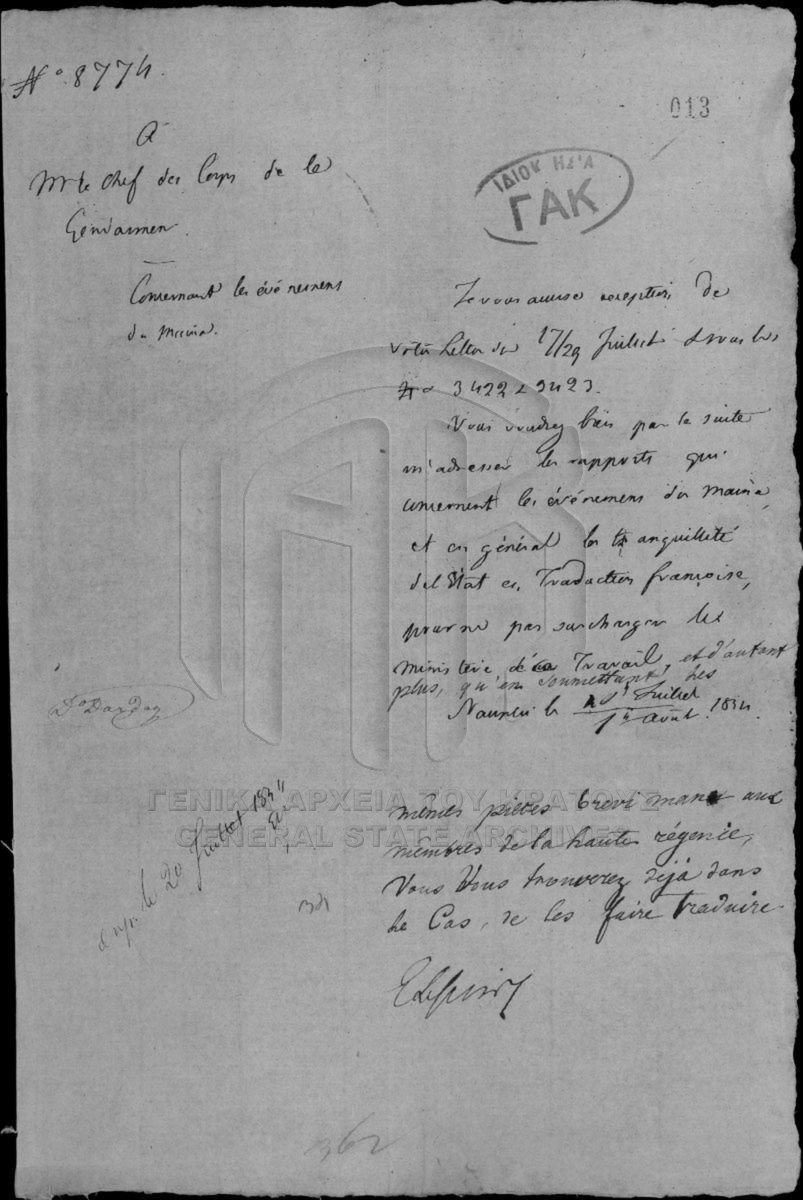 No 8774
013
A
Mr le chef des Corps de le
Gendarmen
Concernant les événemens
du Maina.
ΓΑΚ
Je vous accuse reception de
votre lettre du 17/29 Juillet sous les
No 3422 & 3423.
Vous voudrez bien par la suite
m'adresser les rapports qui
concernent les événemens du Maina,
et en général la tranquillité
de l'État en Traduction françoise,
pour ne pas surcharger le
ministère de Travail, et d'autant
plus, qu'en soumettant les
Nauplie le Juillet
1er août 1834.
mêmes pièces brevi manu aux
membres de la haute régence,
Vous Vous trouverez déjà dans
le Cas, de les faire traduire.
le 20 Juillet 1834
ΓΕΝΙΚΑ ΑΡΧΕΙΑ ΤΟΥ ΚΡΑΤΟΥΣ
GENERAL STATE ARCHIVES
362